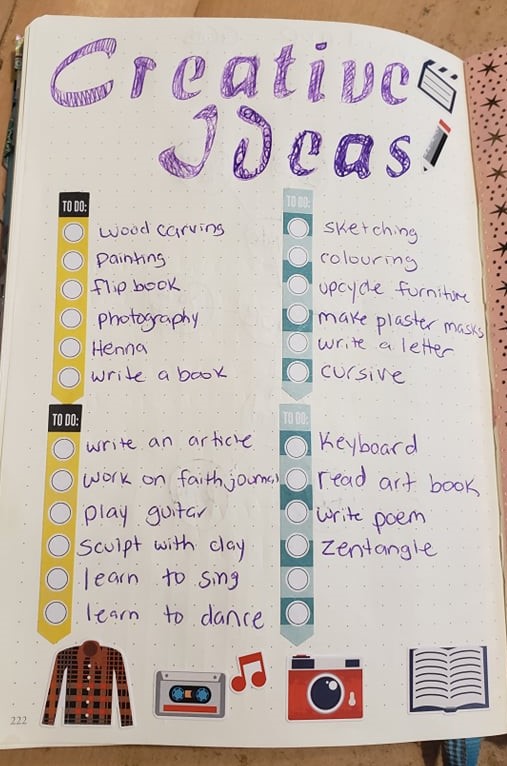 Creative
Ideas
TO DO:
wood carving
Painting
flip book
photography
Henna
write a book
TO DO:
sketching
colouring
upcycle furniture
make plaster masks
write a letter
cursive
TO DO:
write an article
work on faith journal
play guitar
sculpt with clay
learn to sing
learn to dance
TO DO:
Keyboard
read art book
write poem
zentangle
222